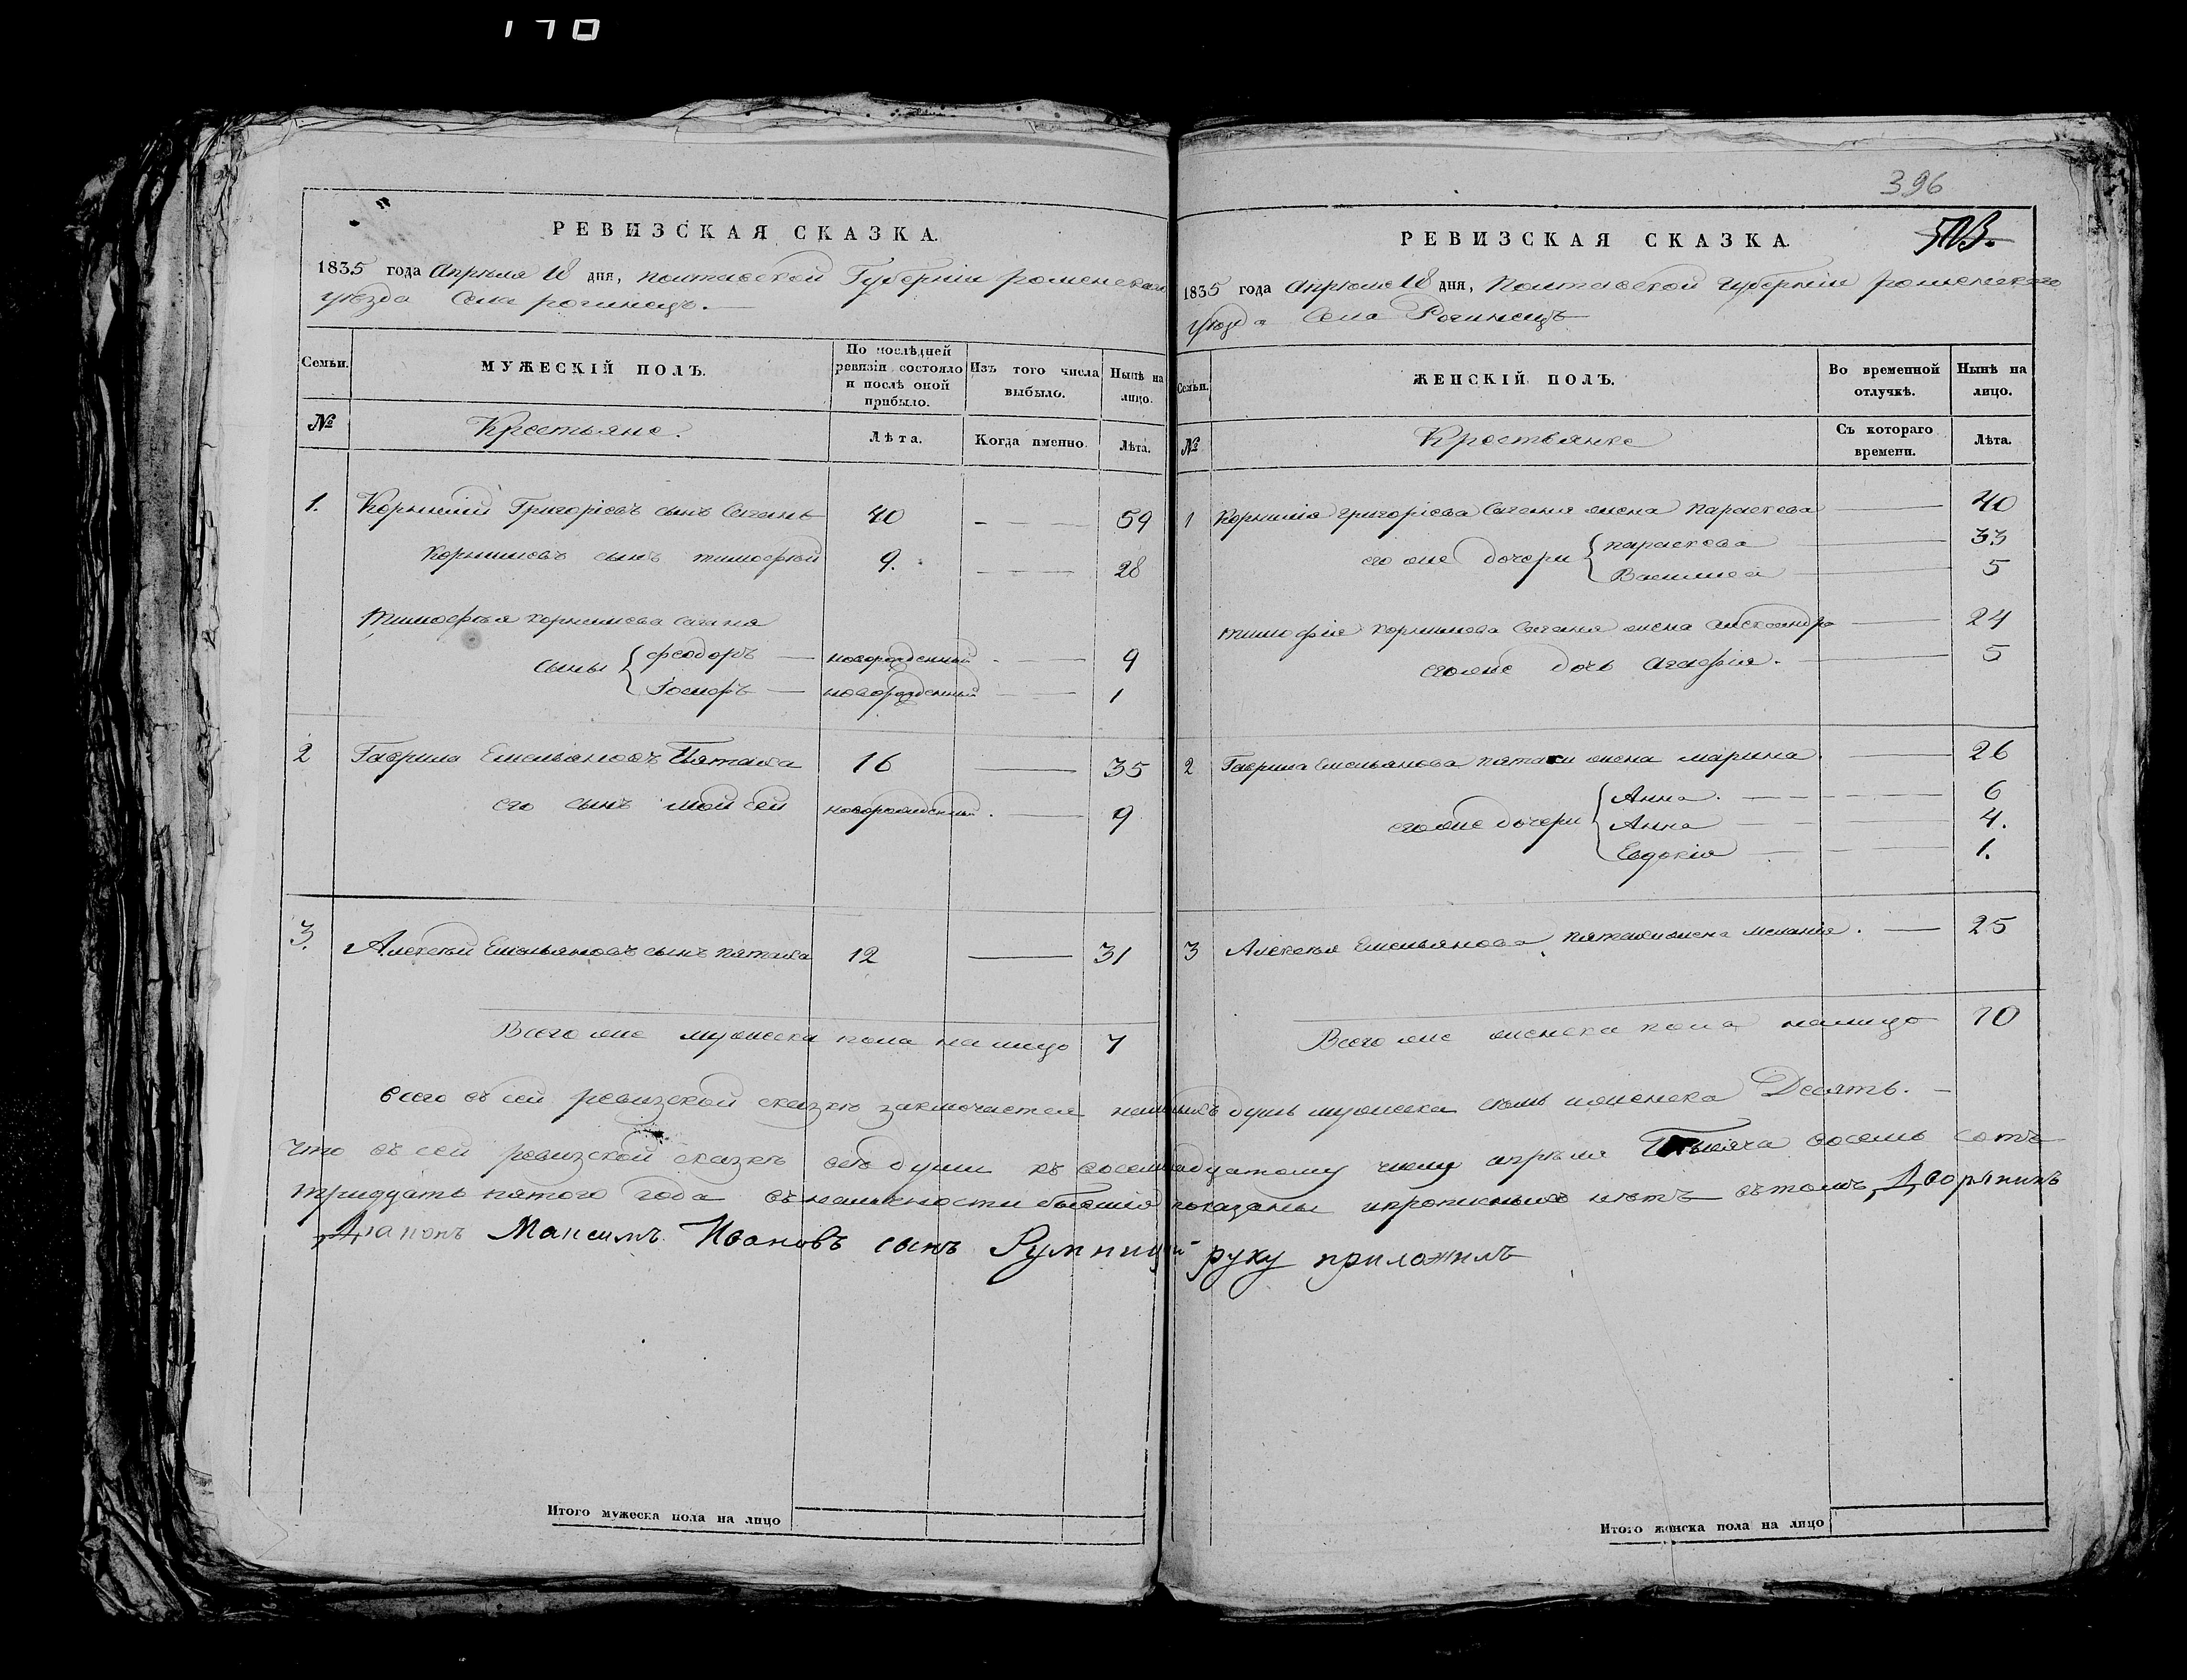 170
РЕВИЗСКАЯ СКАЗКА.
1835 года Апрѣля 18 дня, полтавской Губерніи роменскаго
уѣзда Села рогинецъ.
Семьи. МУЖЕСКІЙ ПОЛЪ. По послѣдней ревизіи состояло и послѣ оной прибыло. Изъ того числа выбыло. Нынѣ на лицо.
№ Крестьяне. Лѣта. Когда именно. Лѣта.
1. Корнилий Григоріевъ сынъ Сагань 40 59
Корниліевъ сынъ тимофѣй 9. 28
Тимофѣя корнилиева саганя
сыны феодоръ новорожденный 9
новорожденный 1
2 Гаврила Емельяновъ Пятака 16 35
его сынъ мойсей новорожденный 9
3. Алексѣй Емельяновъ сынъ пятака 12 31
Всего же мужеска пола на лицо 7
396
РЕВИЗСКАЯ СКАЗКА.
1835 года Апрѣля 18 дня, Полтавской губерніи роменскаго
уѣзда Села Рогинецъ
Семьи. ЖЕНСКІЙ ПОЛЪ. Во временной отлучкѣ. Нынѣ на лицо.
№ Крестьянке Съ котораго времени. Лѣта.
1 Корнилія григоріева Саганя жена параскева 40
его же дочери параскева 33
Василиса 5
тимофія корнилиева Саганя жена александра 24
его же дочь агафія. 5
2 Гаврила Емельянова пятаки жена марина 26
его же дочери Анна. 6
Анна 4.
Евдокія 1.
3 Алексѣя Емельянова пятаки жена меланія. 25
Всего же женска пола налицо 10
всего въ сей ревизской сказкѣ заключается наличныхъ душъ мужеска семь иженска Десять.
что въ сей ревизской сказкѣ всѣ души къ восемнадцатому числу апрѣля тысяча восемь сотъ
тридцать пятого года въ наличности бывшія показаны ипрописныхъ нѣтъ вътомъ, Дворянинъ
Максимъ Ивановъ сынъ руку приложилъ
Итого мужеска пола на лицо
Итого женска пола на лицо